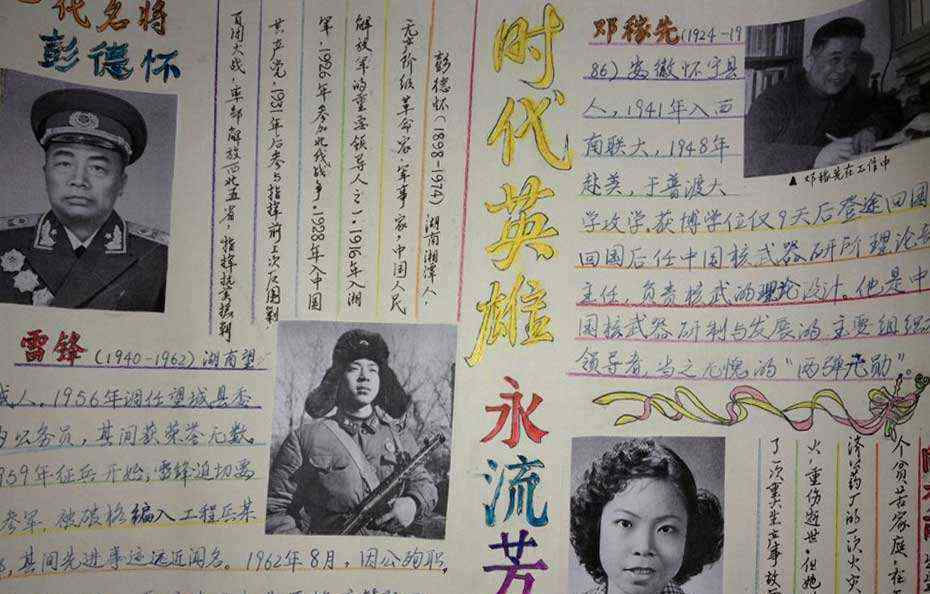 代名将
彭德怀
彭德怀(1898-1974)湖南湘潭人.
无产阶级革命家.军事家.中国人民
解放军的重要领导人之一.1916年入湘
军.1926年参加北伐战争.1928年入中国
共产党.1931年后参与指挥前三次反围剿
百团大战.率部解放西北五省,指挥抗美援朝
雷锋(1940-1962)湖南望
城人,1956年调任望城县委
公务员,其间获荣誉无数
959年征兵开始,雷锋迫切要
参军,被破格编入工程兵某
,其间先进事迹远近闻名。1962年8月,因公殉职,
时代英雄
永流芳
邓稼先(1924-19
86)安徽怀宁县
人,1941年入西
南联大,1948年
赴美,于普渡大
学攻学.获博学位仅9天后登途回国
回国后任中国核武器研所理论部
主任,负责核武的理论设计。他是中
国核武器研制与发展的主要组织
领导者,当之无愧的"两弹元勋"。
▲邓稼先在工作中
个贫苦家庭.在
的一次火灾
火.重伤逝世.但她